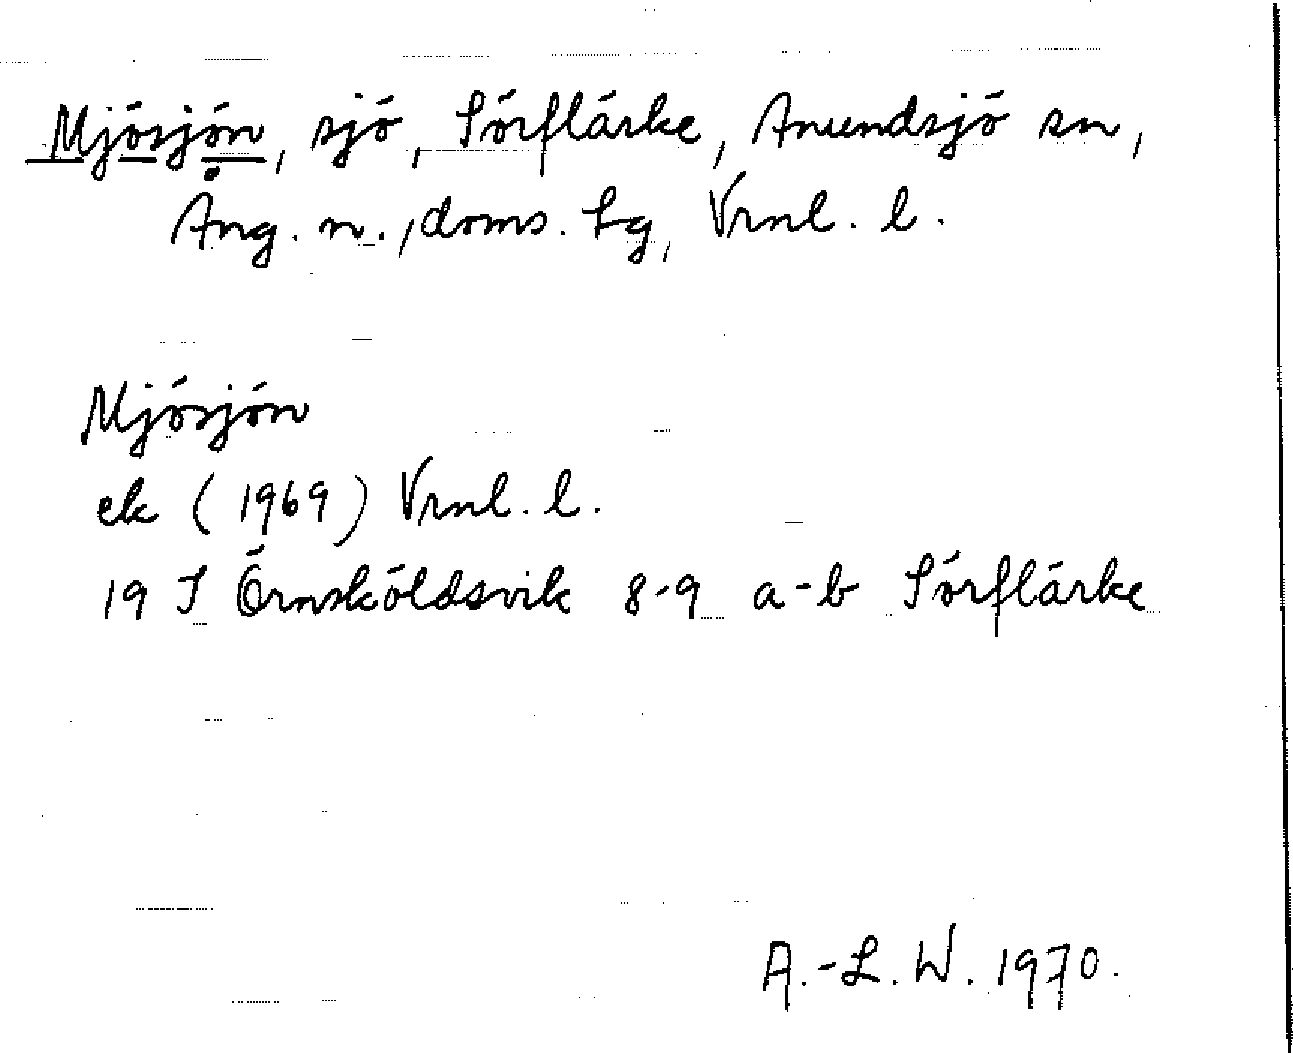 Mjösjön, sjö, Sörflärke, Anundsjö sn,
Ång. n., doms. lg, Vrnl. l.
Mjösjön
ek (1969) Vrnl. l.
19 I Örnsköldsvik 8-9 a-b Sörflärke
A.-L. W. 1970.